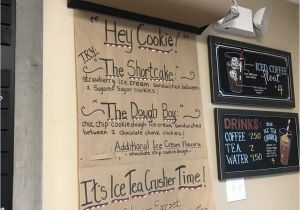 "Hey Cookie!"
TRY:
"The Shortcake:
strawberry ice cream sandwiched between
2 Sugared Sugar cookies.
"The Dough Boy:
choc chip cookie dough ice cream sandwiched
between 2 chocolate chunk cookies!
Additional Ice Cream Flavors:
chocolate chip cookie dough
It's Ice Tea Crusher Time!
ICED COFFEE
Float
$4
DRINKS:
COFFEE 2.50
TEA $2
WATER 7.50